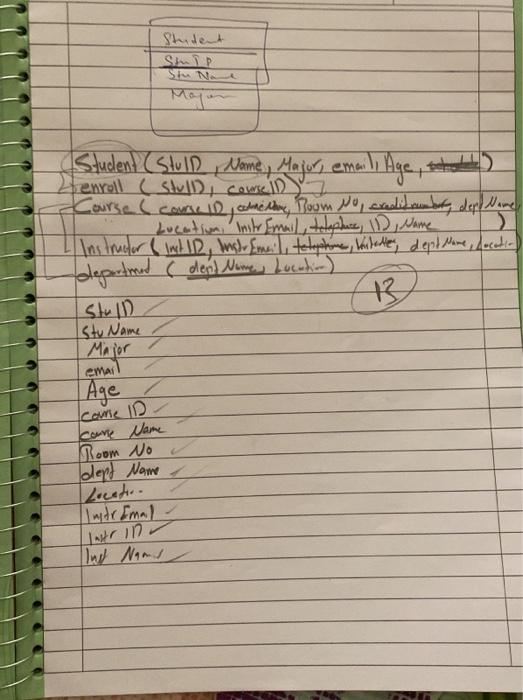 Student
StuID
Stu Name
Major
Student ( StuID, Name, Major, email, Age, )
enroll ( StuID, courseID )
Course ( course ID, course Name, Room No, credit number, dept Name,
Location, Instr Email, telephone, ID, Name )
Instructor ( InstID, Instr Email, telephone, dept Name, Location )
department ( dept Name, Location )
13
StuID
Stu Name
Major
email
Age
course ID
course Name
Room No
dept Name
Location
Instr Email
Instr ID
Inst Name